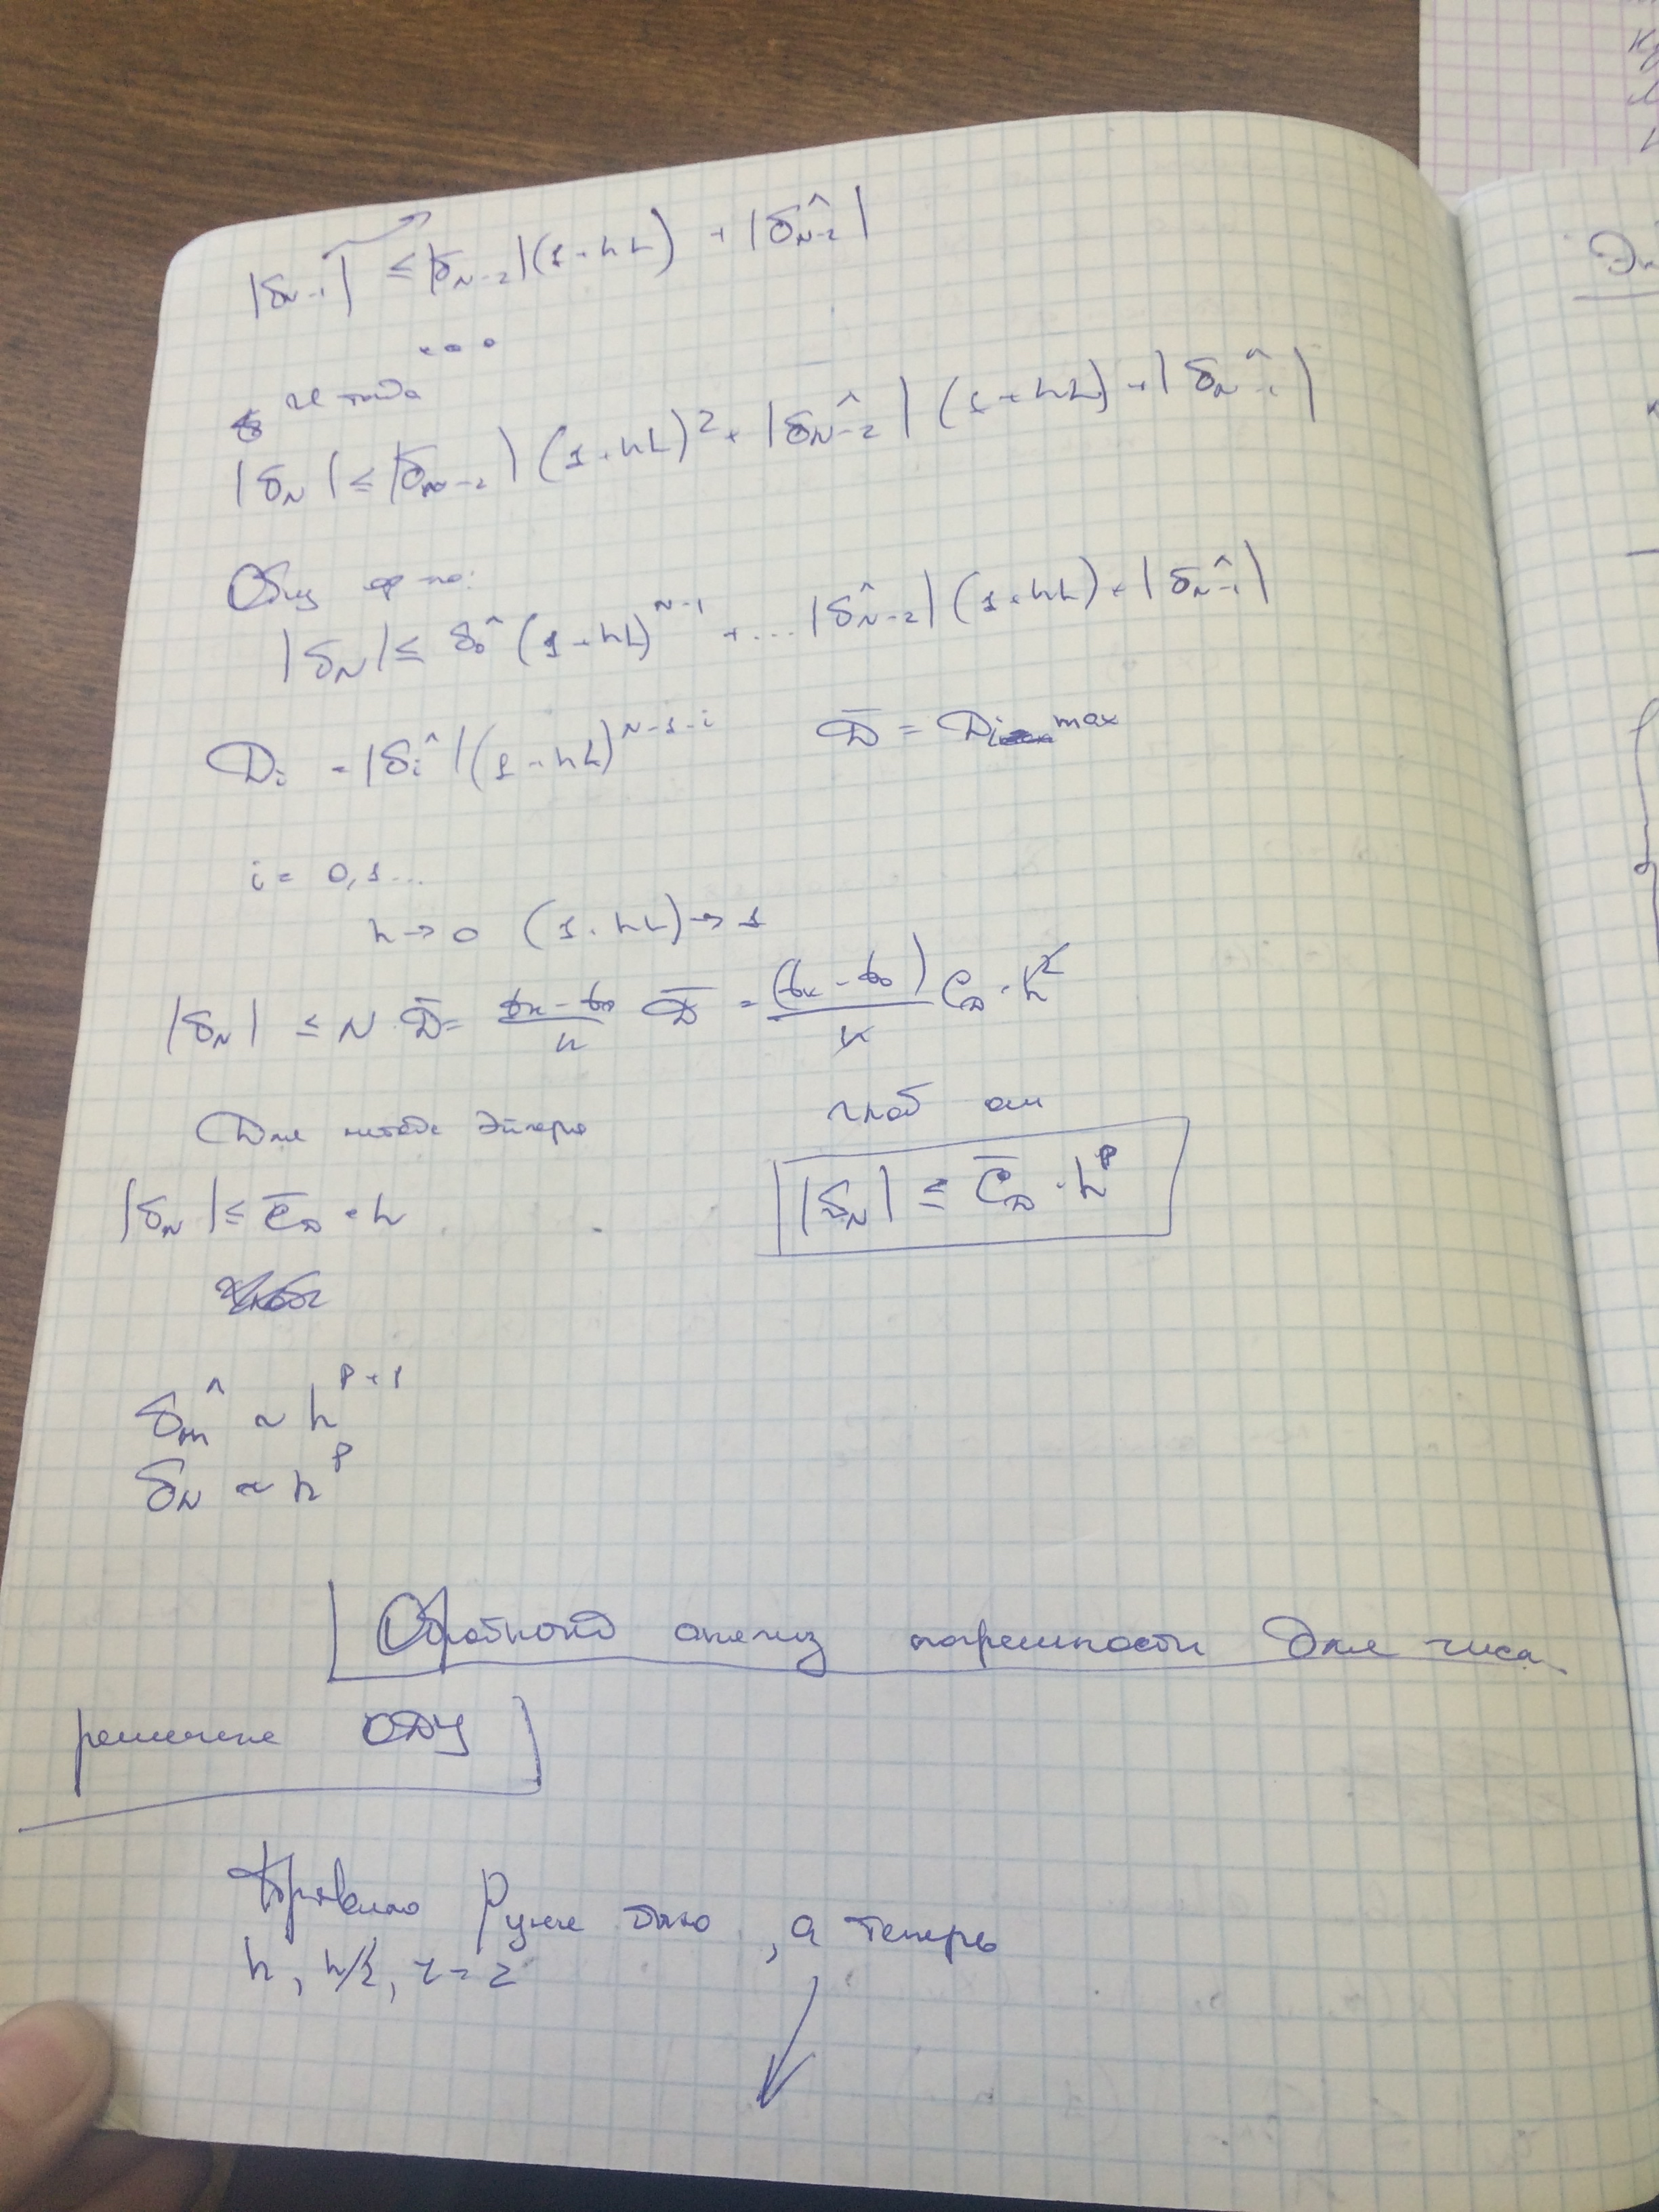 |δ_{N-1}| ≤ |δ_{N-2}|(1+hL) + |δ^_{N-2}|
...
и тогда
|δ_N| ≤ |δ_{N-2}|(1+hL)^2 + |δ^_{N-2}|(1+hL) + |δ^_{N-1}|
|δ_N| ≤ δ^_0 (1+hL)^{N-1} + ... |δ^_{N-2}|(1+hL) + |δ^_{N-1}|
D_i = |δ^_i|(1+hL)^{N-1-i} D̄ = D_i max
i = 0,1...
h → 0 (1+hL) → 1
|δ_N| ≤ N D̄ = (t_k - t_0)/h D̄ = (t_k - t_0)/h C_D · h^2
Для метода Эйлера глоб ош
|δ_N| ≤ C̄_D · h |δ_N| ≤ C̄_D · h^p
δ^_m ~ h^{p+1}
δ_N ~ h^p
анализ погрешности для числ.
решения ОДУ
Правило Рунге было, а теперь
h, h/2, r=2